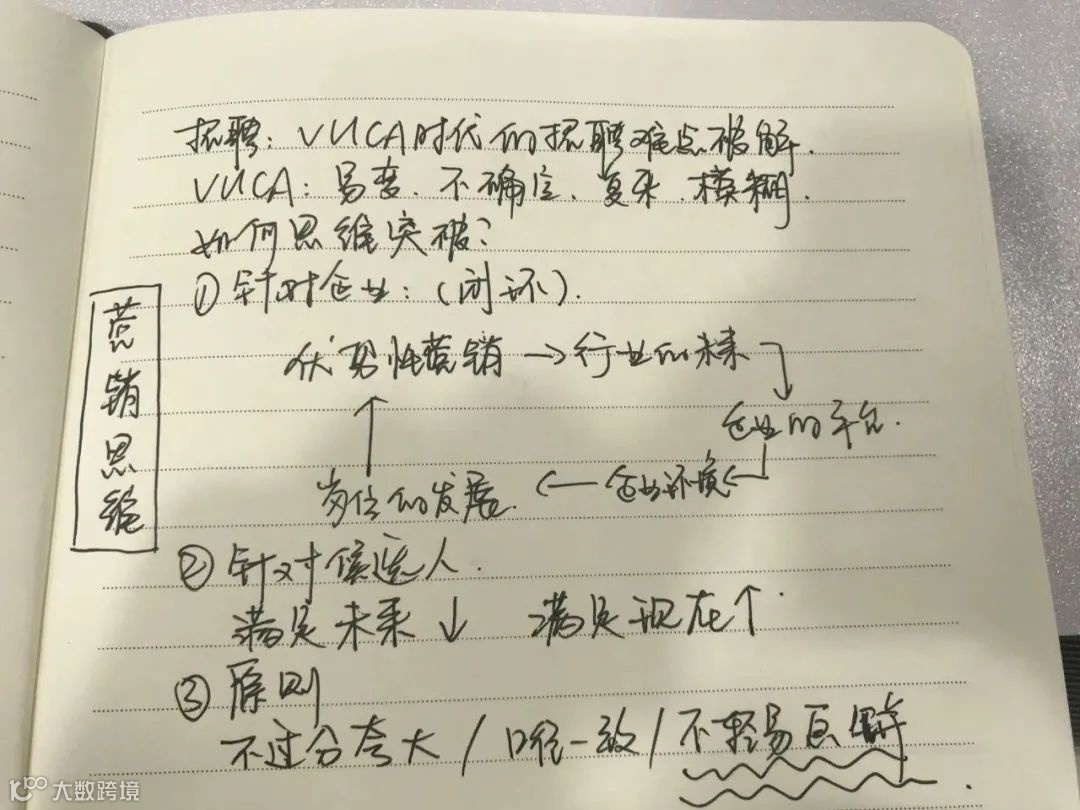 招聘：VUCA时代的招聘难点破解.
VUCA：易变.不确定.复杂.模糊.
如何思维突破？
①针对企业：(闭环).
营销思维
优势性营销→行业的未来
企业的平台.
岗位的发展.←企业环境←
②针对候选人.
满足未来↓ 满足现在↑
③原则
不过分夸大/口径一致/不轻易画饼
大数跨境